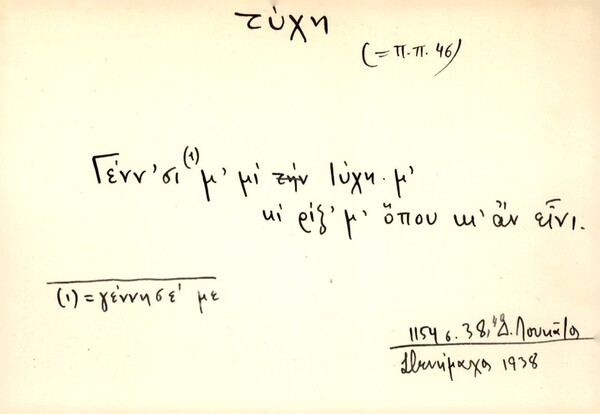 τύχη
(= π.π. 46)
Γένν'σι⁽¹⁾ μ' μὶ τὴν τύχη μ'
κὶ ρίξ' μ' ὅπου κι' ἂν εἶνι.
(1) = γέννησέ' με
1154 σ. 38, Δ. Λουκᾶτος
Στενήμαχος 1938